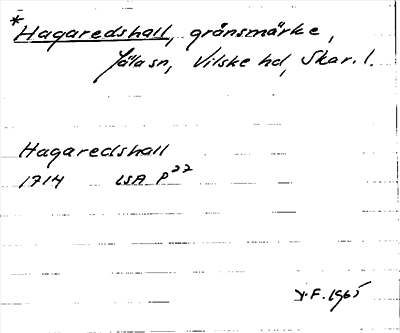 *
Hagaredshall, gränsmärke,
Jäla sn, Vilske hd, Skar. l.
Hagaredshall
1714 LSA P22
Y.F. 1965